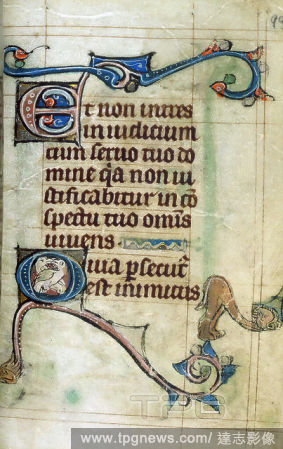 Et non intres
in iudicium
cum seruo tuo do
mine q̄a non iu
stificabitur in cō
spectu tuo omīs
uiuens
Quia ꝑsecut᷒
est inimicus
TPG
www.tpgnews.com/ 達志影像